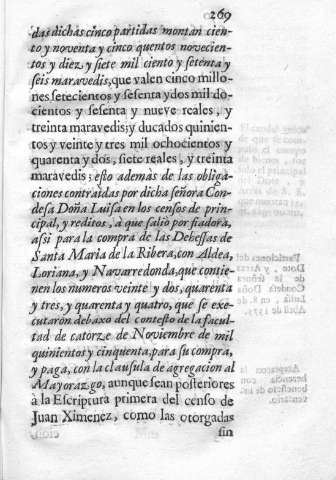 269
das dichas cinco partidas montan cien-
to y noventa y cinco quentos novecien-
tos y diez y siete mil ciento y setenta y
seis maravedis, que valen cinco millo-
nes setecientos y sesenta y dos mil do-
cientos y sesenta y nueve reales, y
treinta maravedis; y ducados quinien-
tos y veinte y tres mil ochocientos y
quarenta y dos, siete reales, y treinta
maravedis; esto además de las obliga-
ciones contraidas por dicha señora Con-
desa Doña Luisa en los censos de prin-
cipal, y reditos, à que saliò por fiadora,
assi para la compra de las Dehessas de
Santa Maria de la Ribera, con Aldea,
Loriana, y Navarredonda, que contie-
nen los numeros veinte y dos, quarenta
y tres, y quarenta y quatro, que se exe-
cutaròn debaxo del contesto de la facul-
tad de catorze de Noviembre de mil
quinientos y cinquenta, para su compra,
y paga, con la clausula de agregacion al
Mayorazgo, aunque sean posteriores
à la Escriptura primera del censo de
Juan Ximenez, como las otorgadas
sin